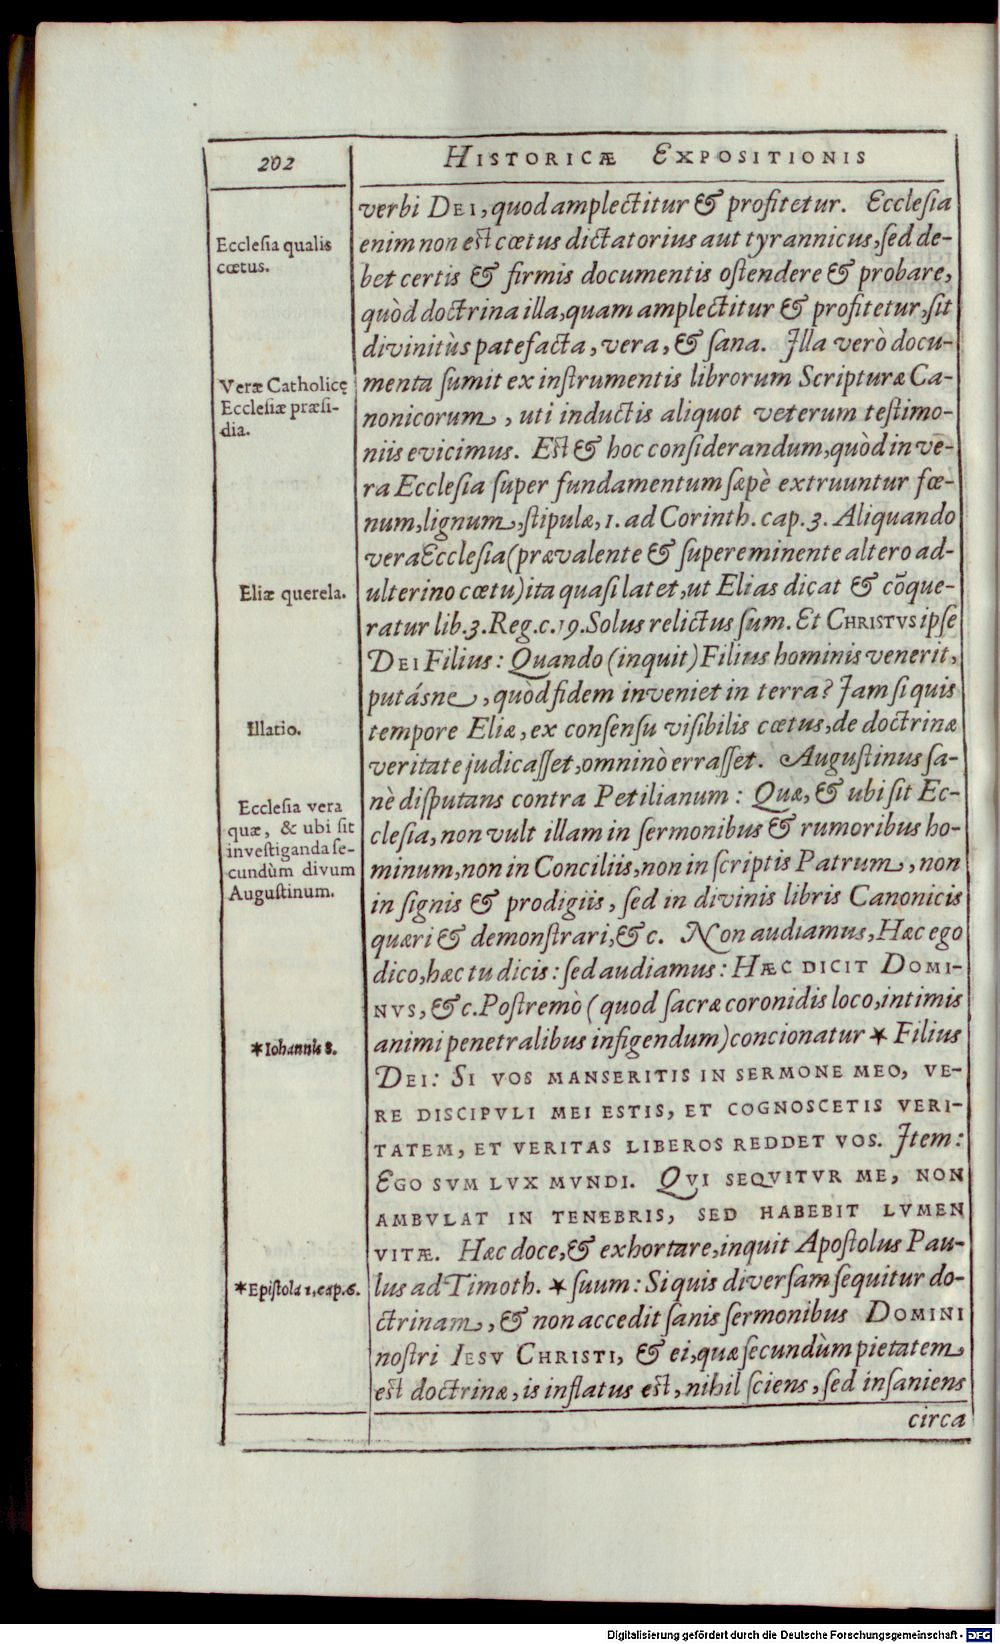 202
HISTORICÆ EXPOSITIONIS
verbi DEI, quod amplectitur & profitetur. Ecclesia
Ecclesia qualis
cœtus.
enim non est cœtus dictatorius aut tyrannicus, sed de-
bet certis & firmis documentis ostendere & probare,
quòd doctrina illa, quam amplectitur & profitetur, sit
divinitùs patefacta, vera, & sana. Illa verò docu-
Veræ Catholicę
Ecclesiæ præsi-
dia.
menta sumit ex instrumentis librorum Scripturæ Ca-
nonicorum, uti inductis aliquot veterum testimo-
niis evicimus. Est & hoc considerandum, quòd in ve-
ra Ecclesia super fundamentum sæpè extruuntur fœ-
num, lignum, stipulæ, 1. ad Corinth. cap. 3. Aliquando
vera Ecclesia (prævalente & supereminente altero ad-
Eliæ querela.
ulterino cœtu) ita quasi latet, ut Elias dicat & cōque-
ratur lib. 3. Reg. c. 19. Solus relictus sum. Et CHRISTVS ipse
DEI Filius: Quando (inquit) Filius hominis venerit,
putásne, quòd fidem inveniet in terra? Jam si quis
Illatio.
tempore Eliæ, ex consensu visibilis cœtus, de doctrinæ
veritate judicasset, omninò errasset. Augustinus sa-
Ecclesia vera
quæ, & ubi sit
investiganda se-
cundùm divum
Augustinum.
nè disputans contra Petilianum: Quæ, & ubi sit Ec-
clesia, non vult illam in sermonibus & rumoribus ho-
minum, non in Conciliis, non in scriptis Patrum, non
in signis & prodigiis, sed in divinis libris Canonicis
quæri & demonstrari, & c. Non audiamus, Hæc ego
dico, hæc tu dicis: sed audiamus: HÆC DICIT DOMI-
NVS, & c. Postremò (quod sacræ coronidis loco, intimis
*Iohannis 8.
animi penetralibus infigendum) concionatur * Filius
DEI: SI VOS MANSERITIS IN SERMONE MEO, VE-
RE DISCIPVLI MEI ESTIS, ET COGNOSCETIS VERI-
TATEM, ET VERITAS LIBEROS REDDET VOS. Item:
EGO SVM LVX MVNDI. QVI SEQVITVR ME, NON
AMBVLAT IN TENEBRIS, SED HABEBIT LVMEN
VITÆ. Hæc doce, & exhortare, inquit Apostolus Pau-
*Epistola 1, cap. 6.
lus ad Timoth. * suum: Si quis diversam sequitur do-
ctrinam, & non accedit sanis sermonibus DOMINI
nostri IESV CHRISTI, & ei, quæ secundùm pietatem
est doctrinæ, is inflatus est, nihil sciens, sed insaniens
circa
Digitalisierung gefördert durch die Deutsche Forschungsgemeinschaft - DFG